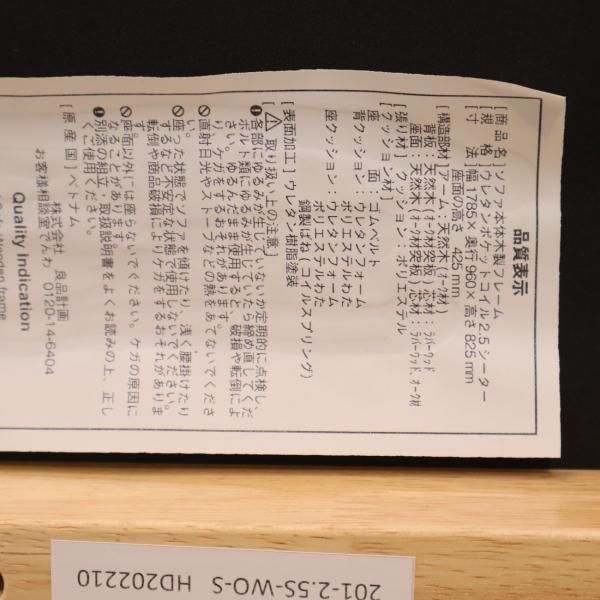 品質表示
[商品名] ソファ本体木製フレーム
[規格] ウレタンポケットコイル2.5シーター
[寸法] 幅1785×奥行960×高さ825mm
座面の高さ 425mm
[構造部材] アーム:天然木(オーク材)
背板:天然木(オーク材突板) 芯材:ラバーウッド
座面:天然木(オーク材突板) 芯材:ラバーウッド、オーク材
[張り材] クッション:ポリエステル
[クッション材]
座面:ゴムベルト
背クッション:ウレタンフォーム
ポリエステルわた
座クッション:ウレタンフォーム
ポリエステルわた
鋼製ばね(コイルスプリング)
[表面加工] ウレタン樹脂塗装
[⚠ 取り扱い上の注意]
各部にゆるみが生じていないか定期的に点検し、
ボルト類にゆるみが生じていたら、締め直してくだ
さい。ゆるんだまま使用すると、破損や転倒によ
り、ケガをするおそれがあります。
直射日光やストーブなどの熱をあてないでくださ
い。
座った状態でソファを傾けたり、浅く腰掛けたり
するなど不安定な状態で使用しないでください。
転倒や商品破損によりケガをするおそれがありま
す。
座面以外には座らないでください。ケガの原因に
なることがあります。
別添の組立・取扱説明書をよくお読みの上、正し
くご使用ください。
[原産国] ベトナム
株式会社 良品計画
お客様相談室でんわ 0120-14-6404
Quality Indication
Wooden frame
201-2.5S-WO-S HD202210